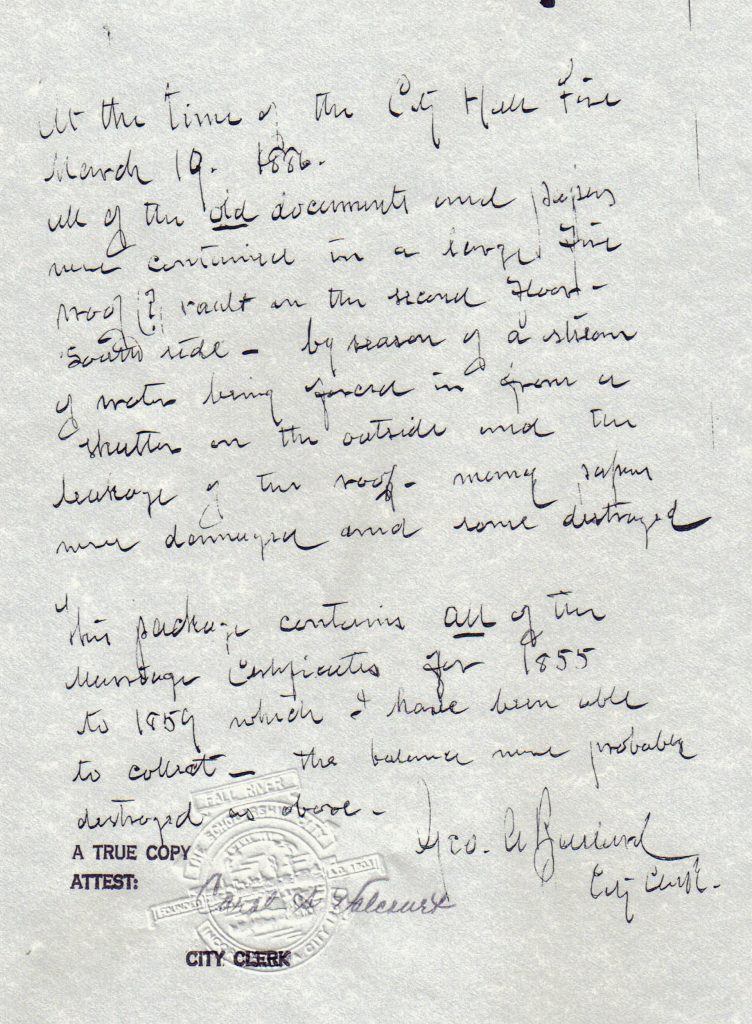 At the time of the City Hall Fire
March 19. 1886.
all of the old documents and papers
were contained in a large Fire
Proof (?) vault on the second Floor -
South side - by reason of a stream
of water being forced in from a
shutter on the outside and the
leakage of the roof - many papers
were damaged and some destroyed
This package contains all of the
Marriage Certificates for 1855
to 1859 which I have been able
to collect - the balance were probably
destroyed as above -
Geo. A Ballard
City Clerk.
A TRUE COPY
ATTEST:
Carol A Valcourt
CITY CLERK
FALL RIVER
THE SCHOLARSHIP CITY